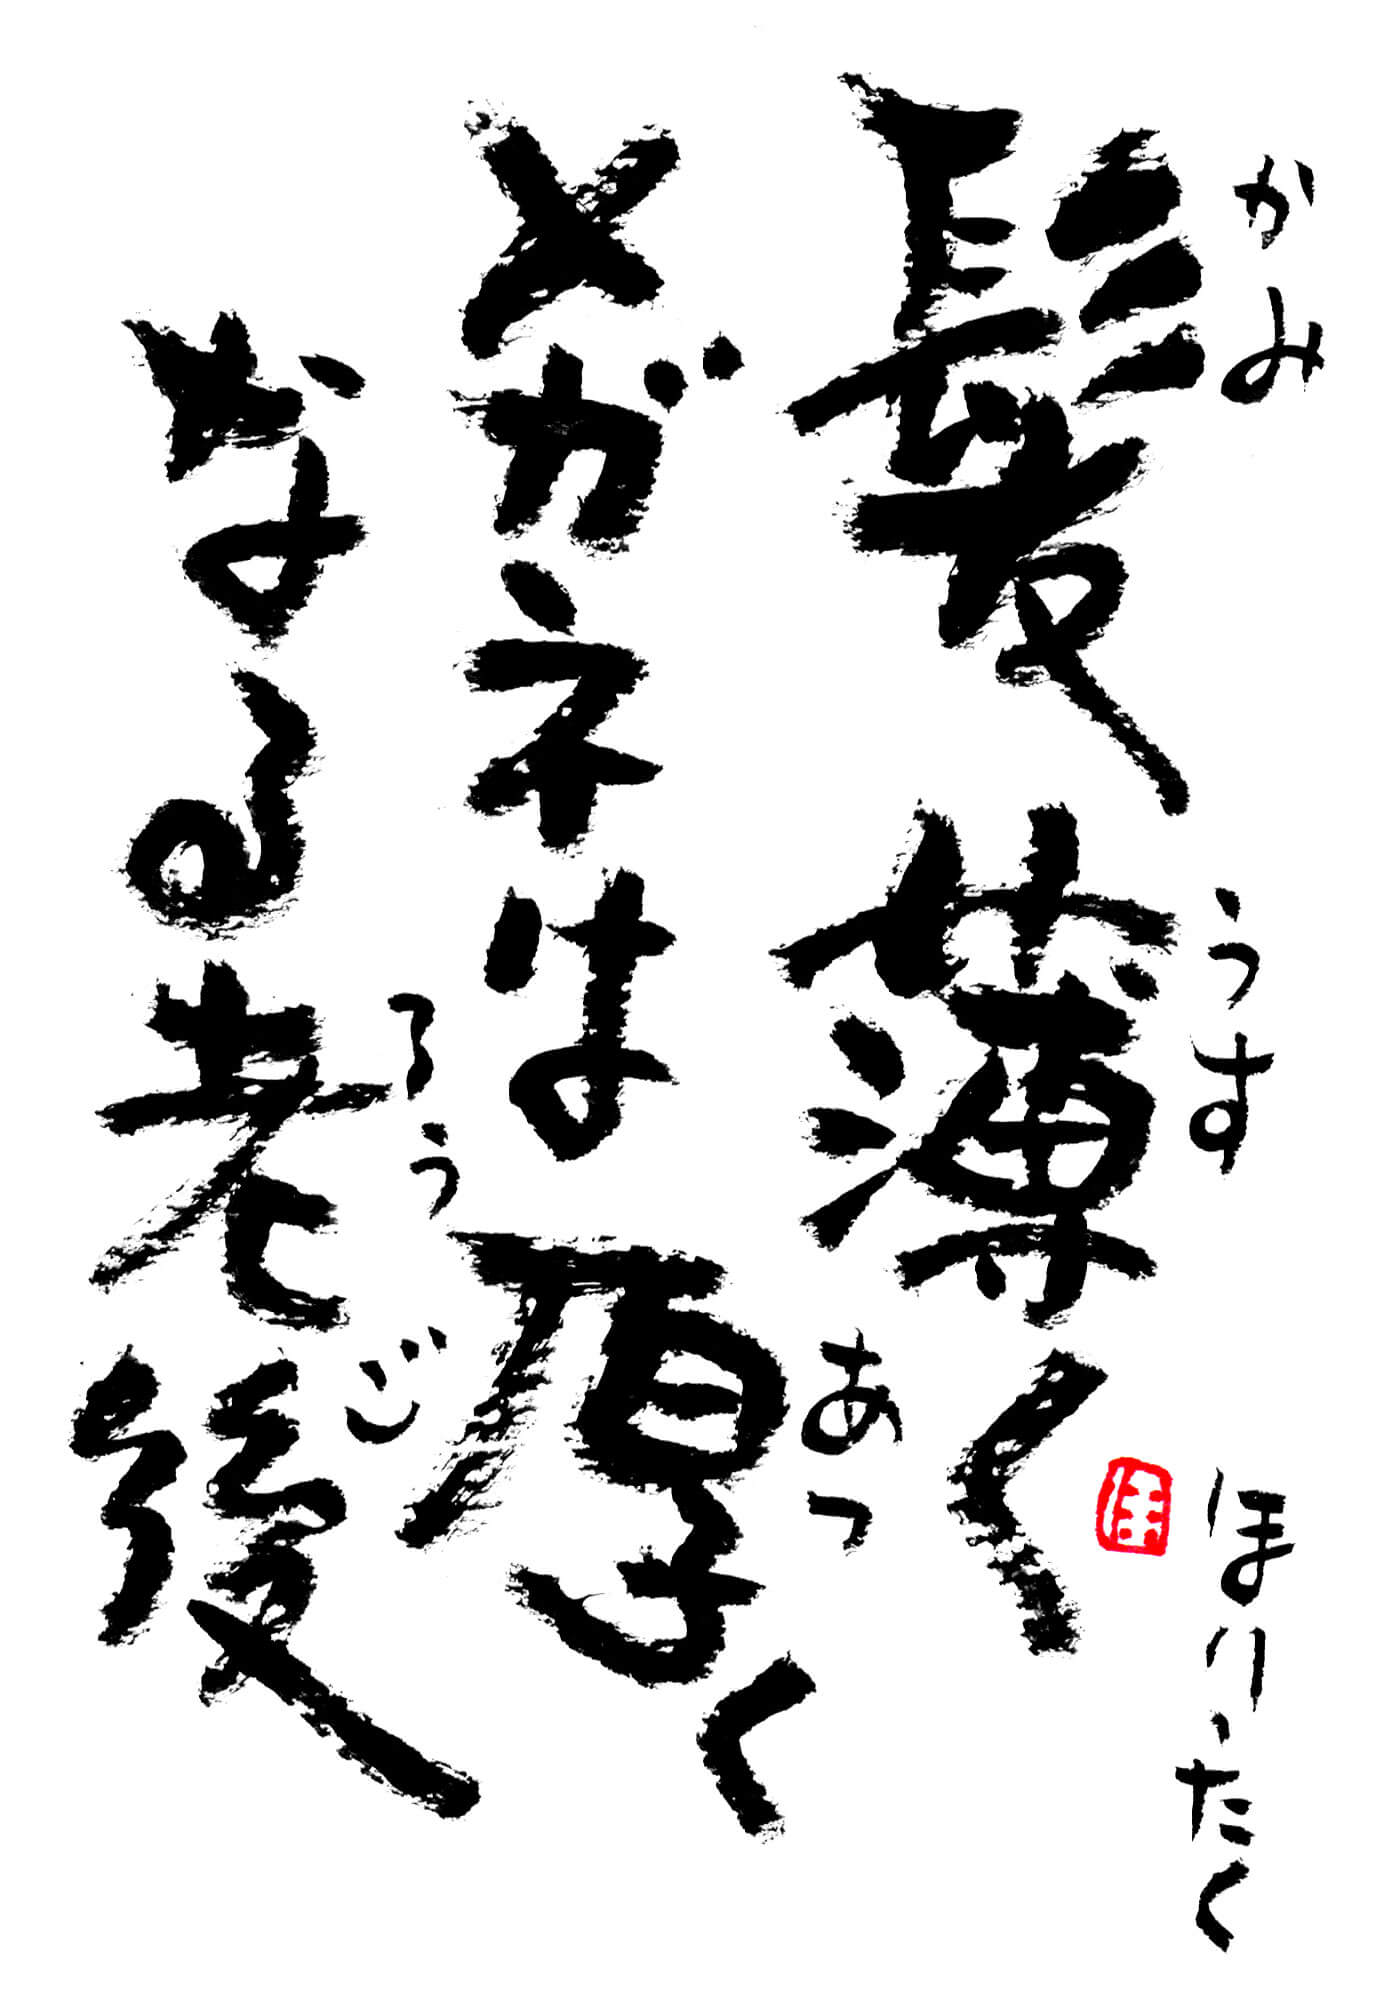 髪薄く
かみ
うす
メガネは厚く
あっ
なる老後
ろうご
ほりったく
ほ